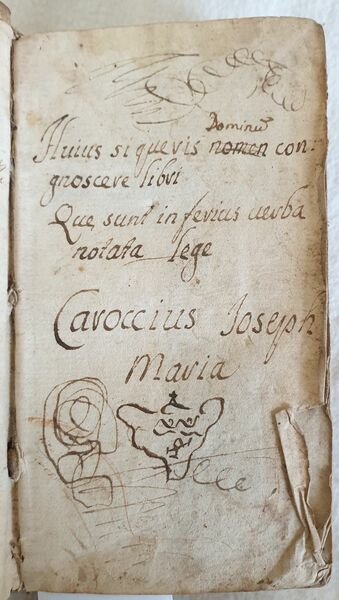 Dominū
Huius si queris nomen con-
gnoscere libri
Que sunt inferius uerba
notata lege
Caroccius Joseph
Maria